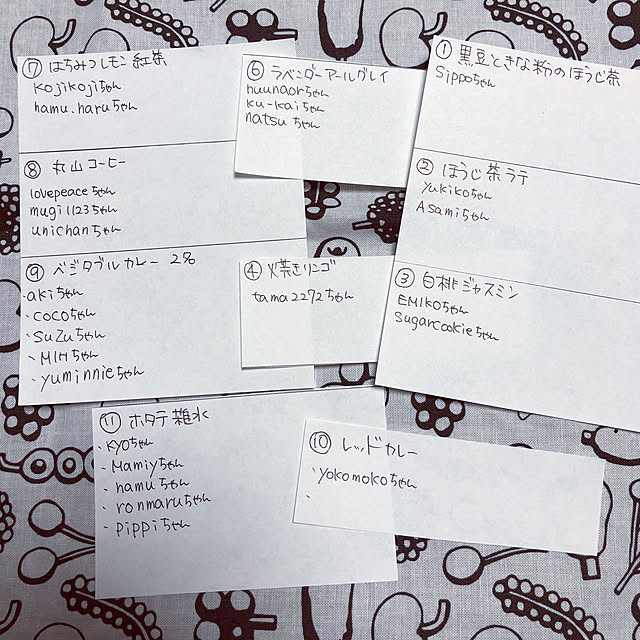 ⑦ はちみつレモン紅茶
kojikojiちゃん
hamu.haruちゃん
⑧ 丸山コーヒー
lovepeaceちゃん
mugi1123ちゃん
unichanちゃん
⑨ ベジタブルカレー 2名
・akiちゃん
・cocoちゃん
・suzuちゃん
・MIHちゃん
・yuminnieちゃん
⑥ ラベンダーアールグレイ
nuunaorちゃん
ku-kaiちゃん
natsuちゃん
④ 焼きリンゴ
tama2272ちゃん
① 黒豆ときな粉のほうじ茶
Sippoちゃん
② ほうじ茶ラテ
Yukikoちゃん
Asamiちゃん
③ 白桃ジャスミン
EMIKOちゃん
Sugarcookieちゃん
⑪ ホタテ雑水
・KYOちゃん
・Mamiyちゃん
・hamuちゃん
・ronmaruちゃん
・pippiちゃん
⑩ レッドカレー
・yokomokoちゃん
・